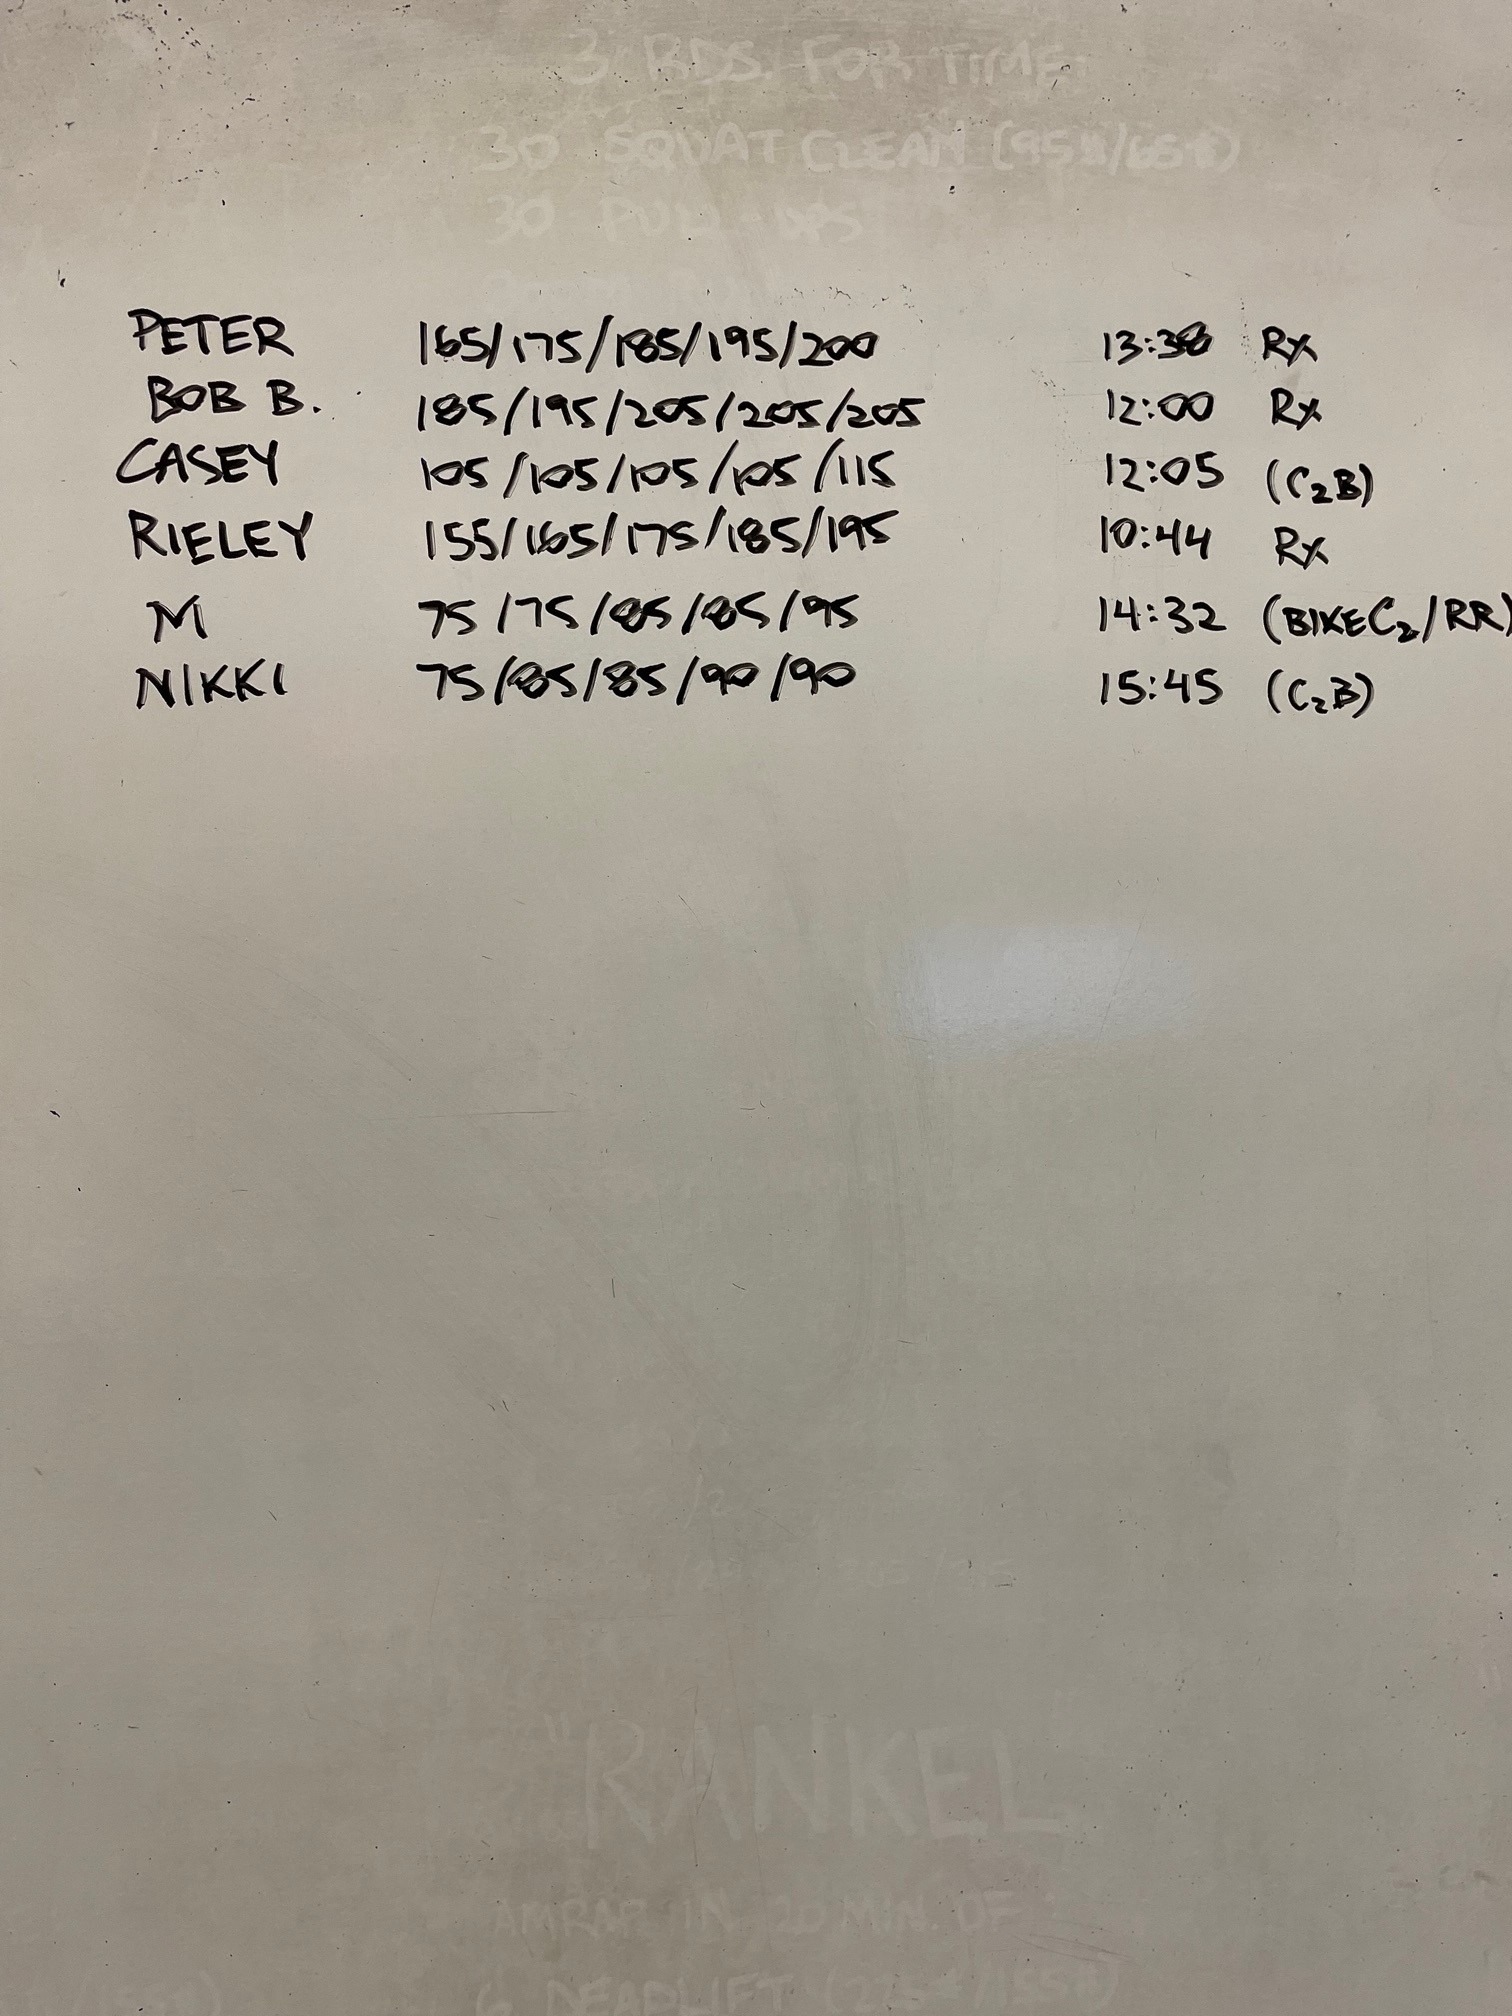 3 RDS. FOR TIME
30 SQUAT CLEAN (95#/65#)
30 PULL-UPS
PETER 165/175/185/195/200 13:38 Rx
BOB B. 185/195/205/205/205 12:00 Rx
CASEY 105/105/105/105/115 12:05 (C2B)
RIELEY 155/165/175/185/195 10:44 Rx
M 75/75/85/85/95 14:32 (BIKE C2/RR)
NIKKI 75/85/85/90/90 15:45 (C2B)
"RANKEL"
AMRAP IN 20 MIN. OF
6 DEADLIFT (225#/155#)